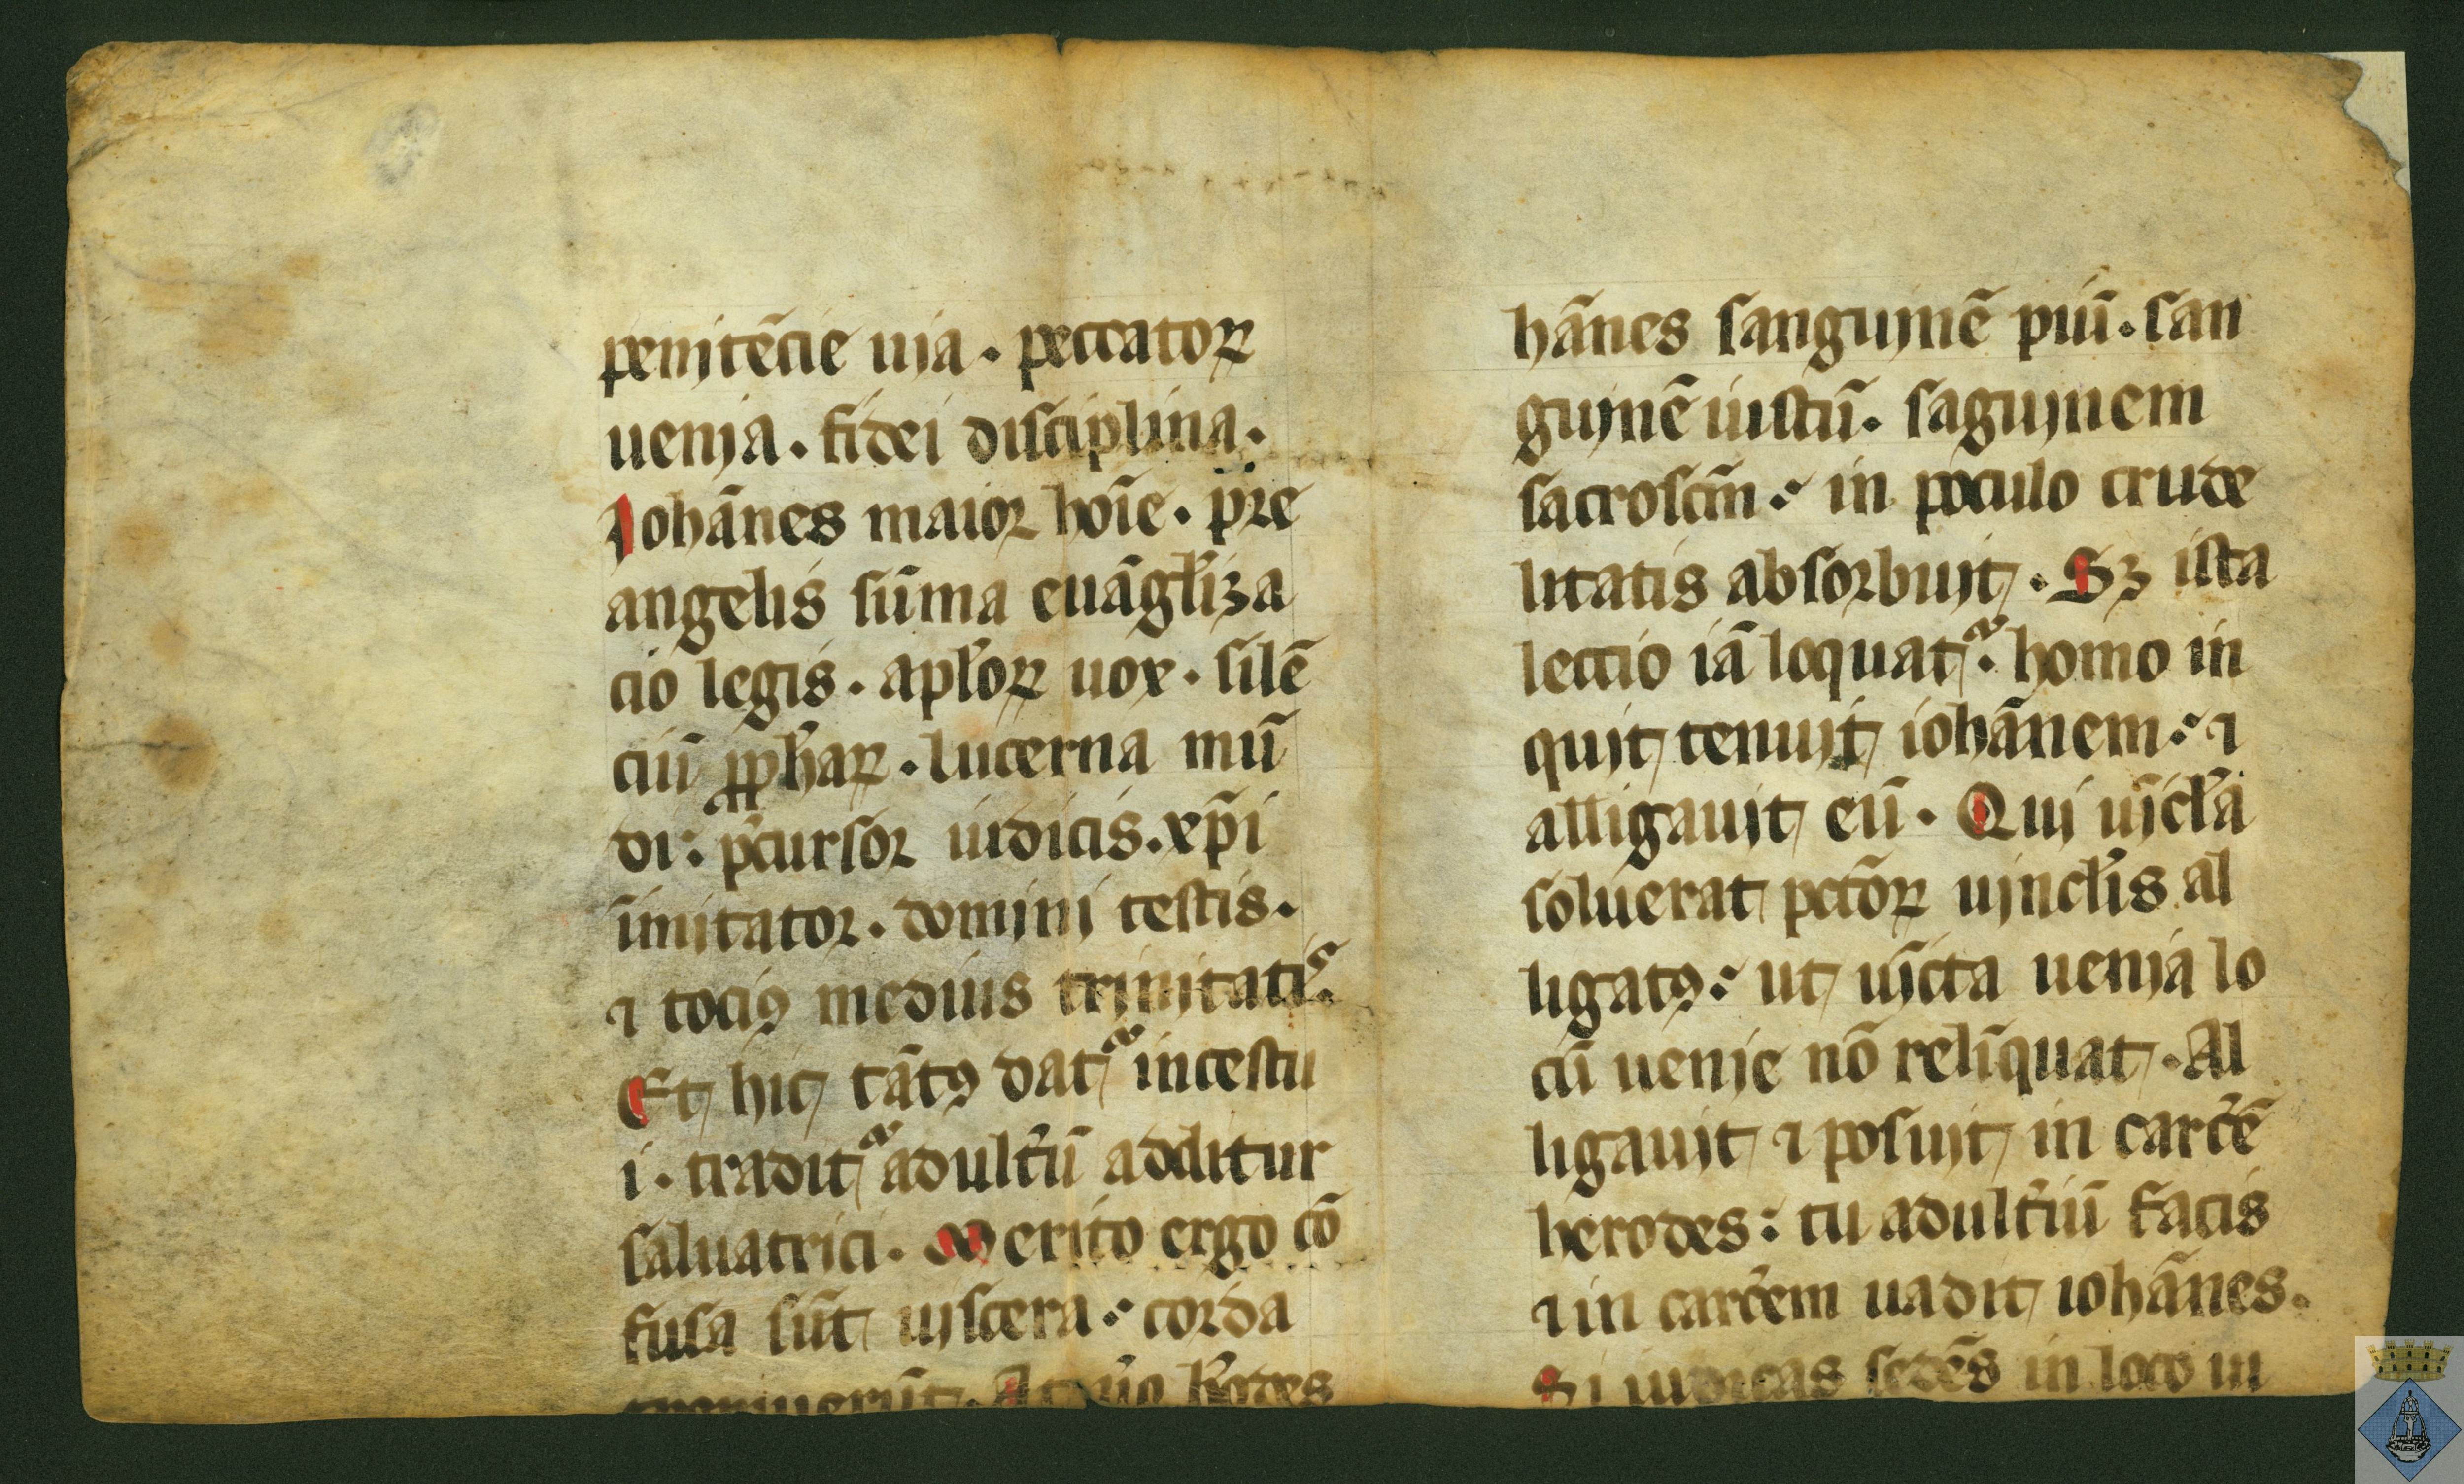 penitẽcie uia . peccatoꝝ
uenia . fidei disciplina .
Iohãnes maior hoĩe . p̲re
angelis sũma euãgl̃iza
cio legis . apl̃oꝝ uox . silẽ
ciũ ꝓph̃aꝝ . lucerna mũ
di : p̃cursor iudicis . xp̃i
ĩmitator . domini testis .
⁊ tociꝰ medius trinitatis .
Et hic tãtꝰ datᷣ incestu
i . traditᷣ adult̃ũ additur
saluatrici . Merito ergo cõ
fusa sũt uiscera : corda
tremuerũt . At ũo h̃odes
hãnes sanguinẽ piũ . san
guinẽ iustũ . saguinem
sacrosc̃m : in poculo crude
litatis absorbuit . Sꝫ ista
lectio iã loquatᷣ . homo in
quit tenuit iohãnem : ⁊
alligauit eũ . Qui uĩcl̃a
soluerat pct̃oꝝ uincl̃is al
ligatꝰ : ut uĩcta uenia lo
cũ uenie nõ relĩquat . Al
ligauit ⁊ posuit in carc̃ẽ
herodes : tu adult̃iũ facis
⁊ in carc̃em uadit iohãnes .
Si iudicas sedẽs in loco iu